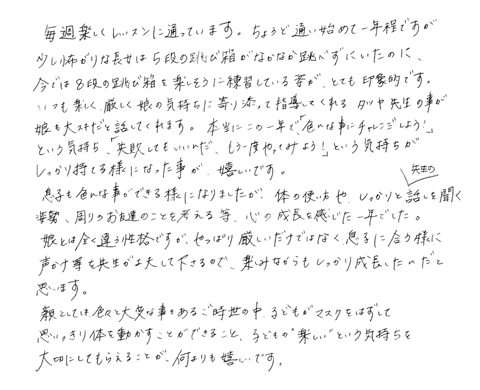 毎週楽しくレッスンに通っています。ちょうど通い始めて一年程ですが
少し怖がりな長女は5段の跳び箱がなかなか跳べずにいたのに、
今では8段の跳び箱を楽しそうに練習している姿が、とても印象的です。
いつも楽しく、厳しく娘の気持ちに寄り添って指導してくれる タツヤ先生の事が
娘も大スキだと話してくれます。本当にこの一年で「色んな事にチャレンジしよう！」
という気持ち、「失敗してもいいんだ、もう一度やってみよう！」という気持ちが
しっかり持てる様になった事が、嬉しいです。
息子も色んな事ができる様になりましたが、体の使い方や、しっかりと先生の話しを聞く
姿勢、周りのお友達のことを考える等、心の成長を感じた一年でした。
娘とは全く違う性格ですが、やっぱり厳しいだけではなく、息子に合う様に
声かけ等を先生が工夫して下さるので、楽しみながらもしっかり成長したのだと
思います。
親としては色々と大変な事もあるご時世の中、子どもがマスクをはずして
思いっきり体を動かすことができること、子どもの"楽しい"という気持ちを
大切にしてもらえることが、何よりも嬉しいです。